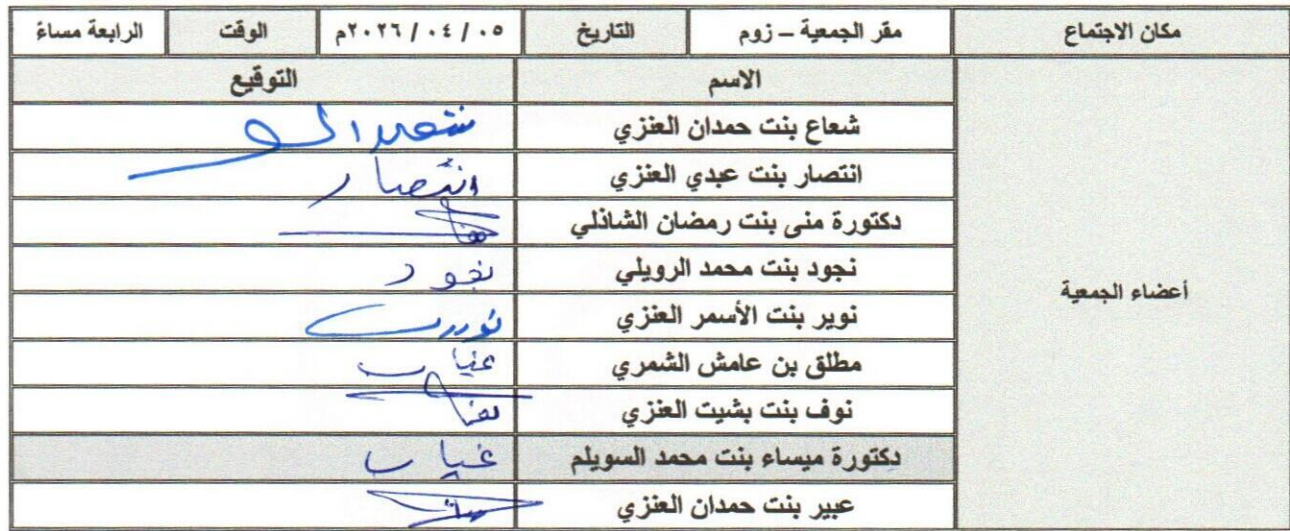 مكان الاجتماع مقر الجمعية – زوم التاريخ ٠٥ / ٠٤ / ٢٠٢٦م الوقت الرابعة مساءً
أعضاء الجمعية
الاسم التوقيع
شعاع بنت حمدان العنزي
انتصار بنت عبدي العنزي انتصار
دكتورة منى بنت رمضان الشاذلي
نجود بنت محمد الرويلي نجود
نوير بنت الأسمر العنزي
مطلق بن عامش الشمري غياب
نوف بنت بشيت العنزي
دكتورة ميساء بنت محمد السويلم غياب
عبير بنت حمدان العنزي